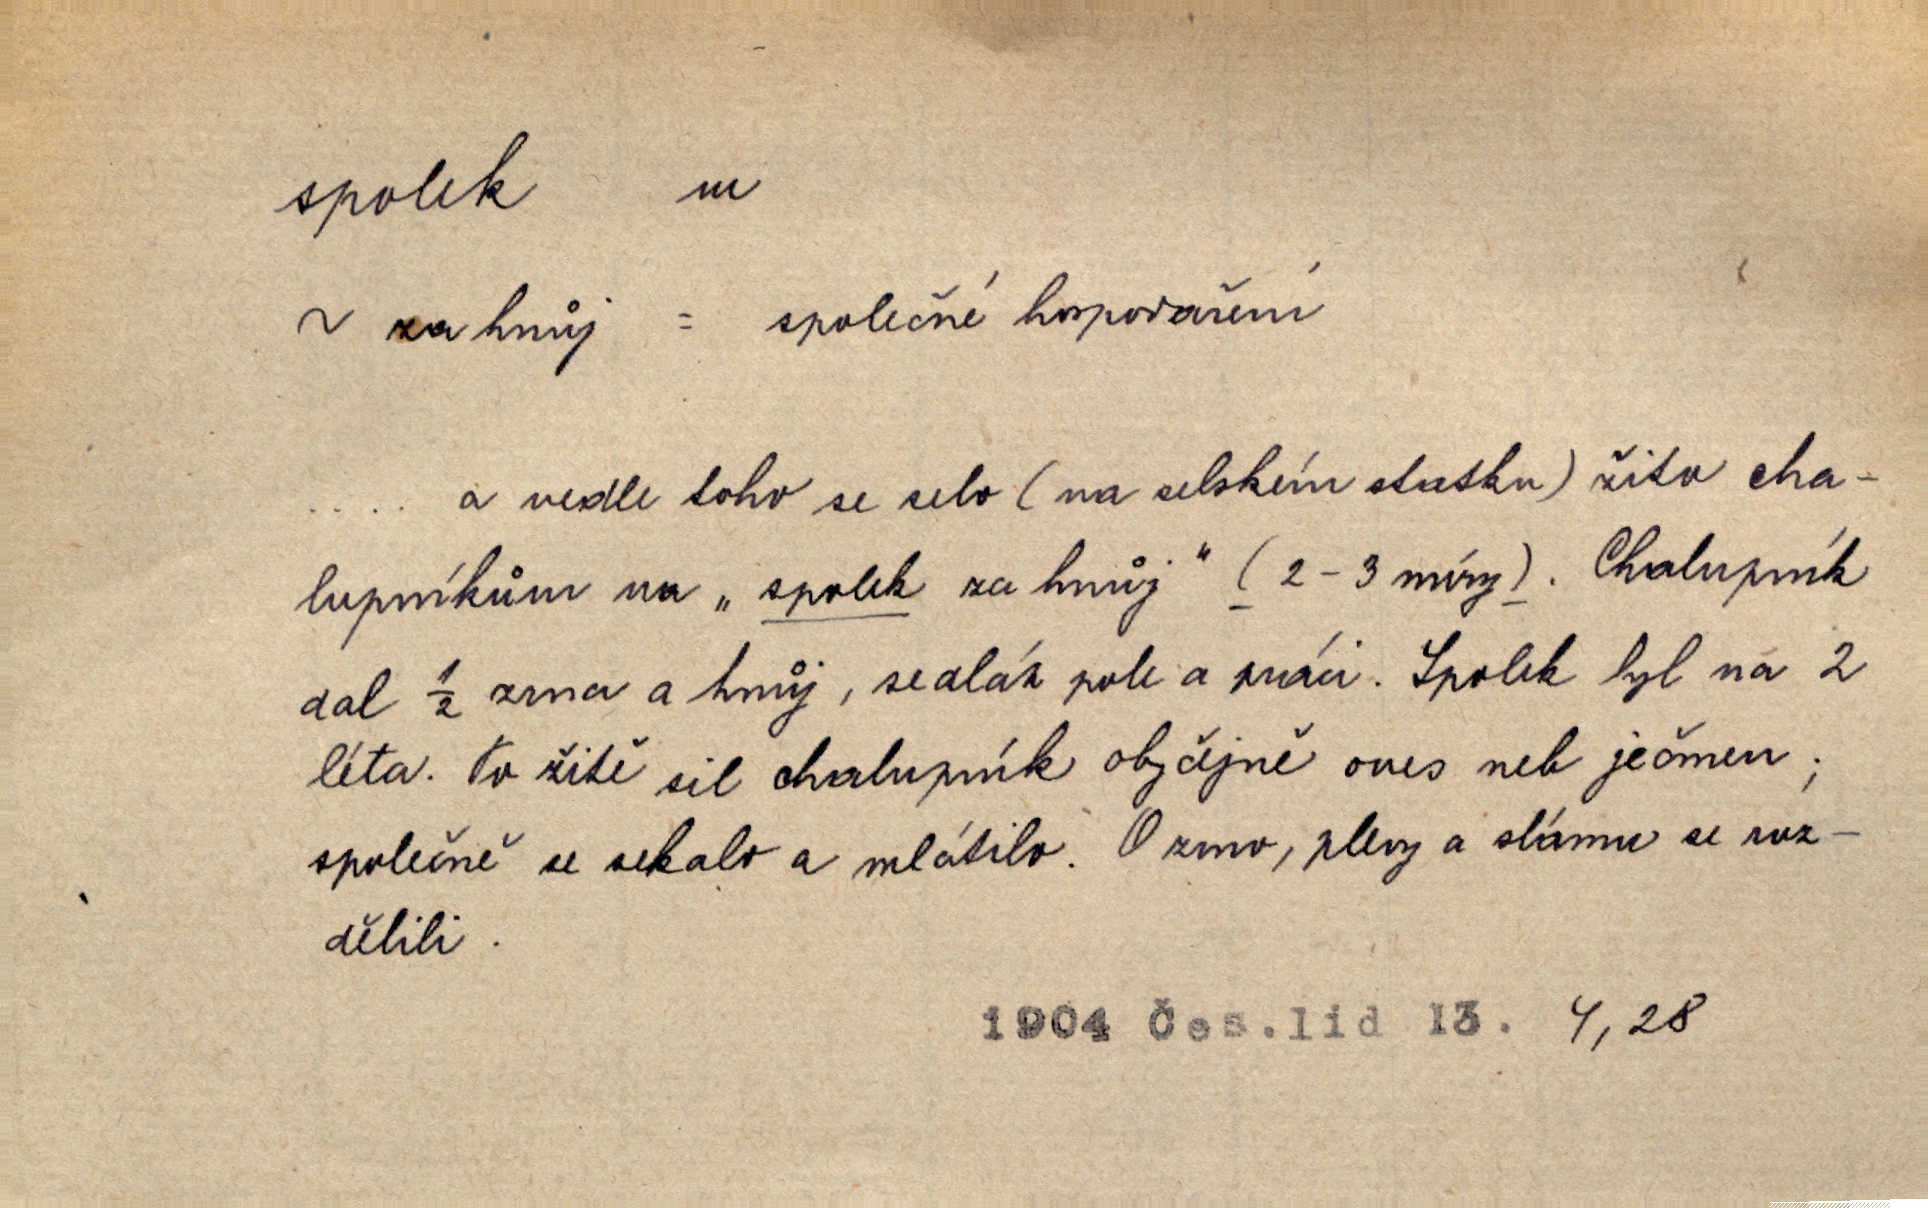 spolek m
~ za hnůj = společné hospodaření
.... a vedle toho se selo (na selském statku) žito cha-
lupníkům na „spolek za hnůj" (2-3 míry). Chalupník
dal ½ zrna a hnůj, sedlák pole a práci. Spolek byl na 2
léta. Po žitě sil chalupník obyčejně oves neb ječmen;
společně se sekalo a mlátilo. O zrno, plevy a slámu se roz-
dělili.
1904 Čes.lid 13. 4, 28